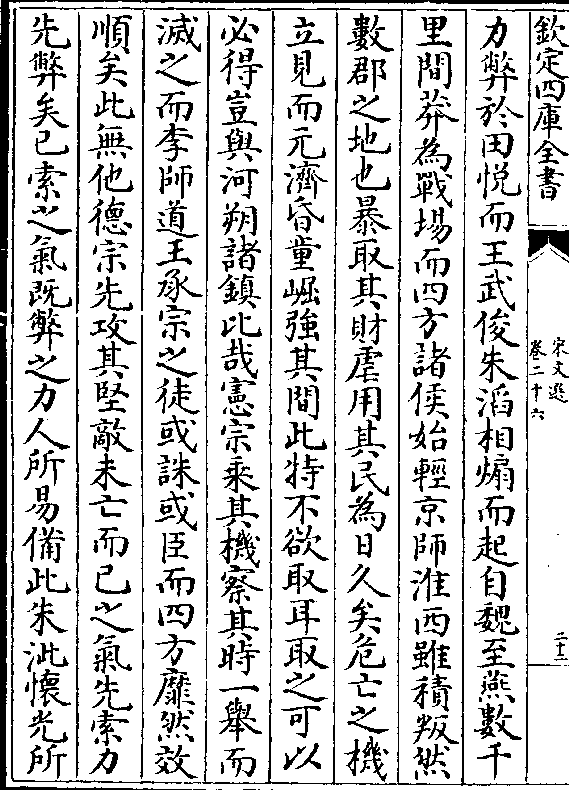 欽定四庫全書
宋文選
卷二十六
二十二
力弊於田悅而王武俊朱滔相煽而起自魏至燕數千
里間莽為戰場而四方諸侯始輕京師淮西雖積叛然
數郡之地也暴取其財虐用其民為日久矣危亡之機
立見而元濟昏童崛強其間此特不欲取耳取之可以
必得豈與河朔諸鎮比哉憲宗乘其機察其時一舉而
滅之而李師道王承宗之徒或誅或臣而四方靡然效
順矣此無他德宗先攻其堅敵未亡而已之氣先索力
先弊矣已索之氣既弊之力人所易備此朱泚懷光所